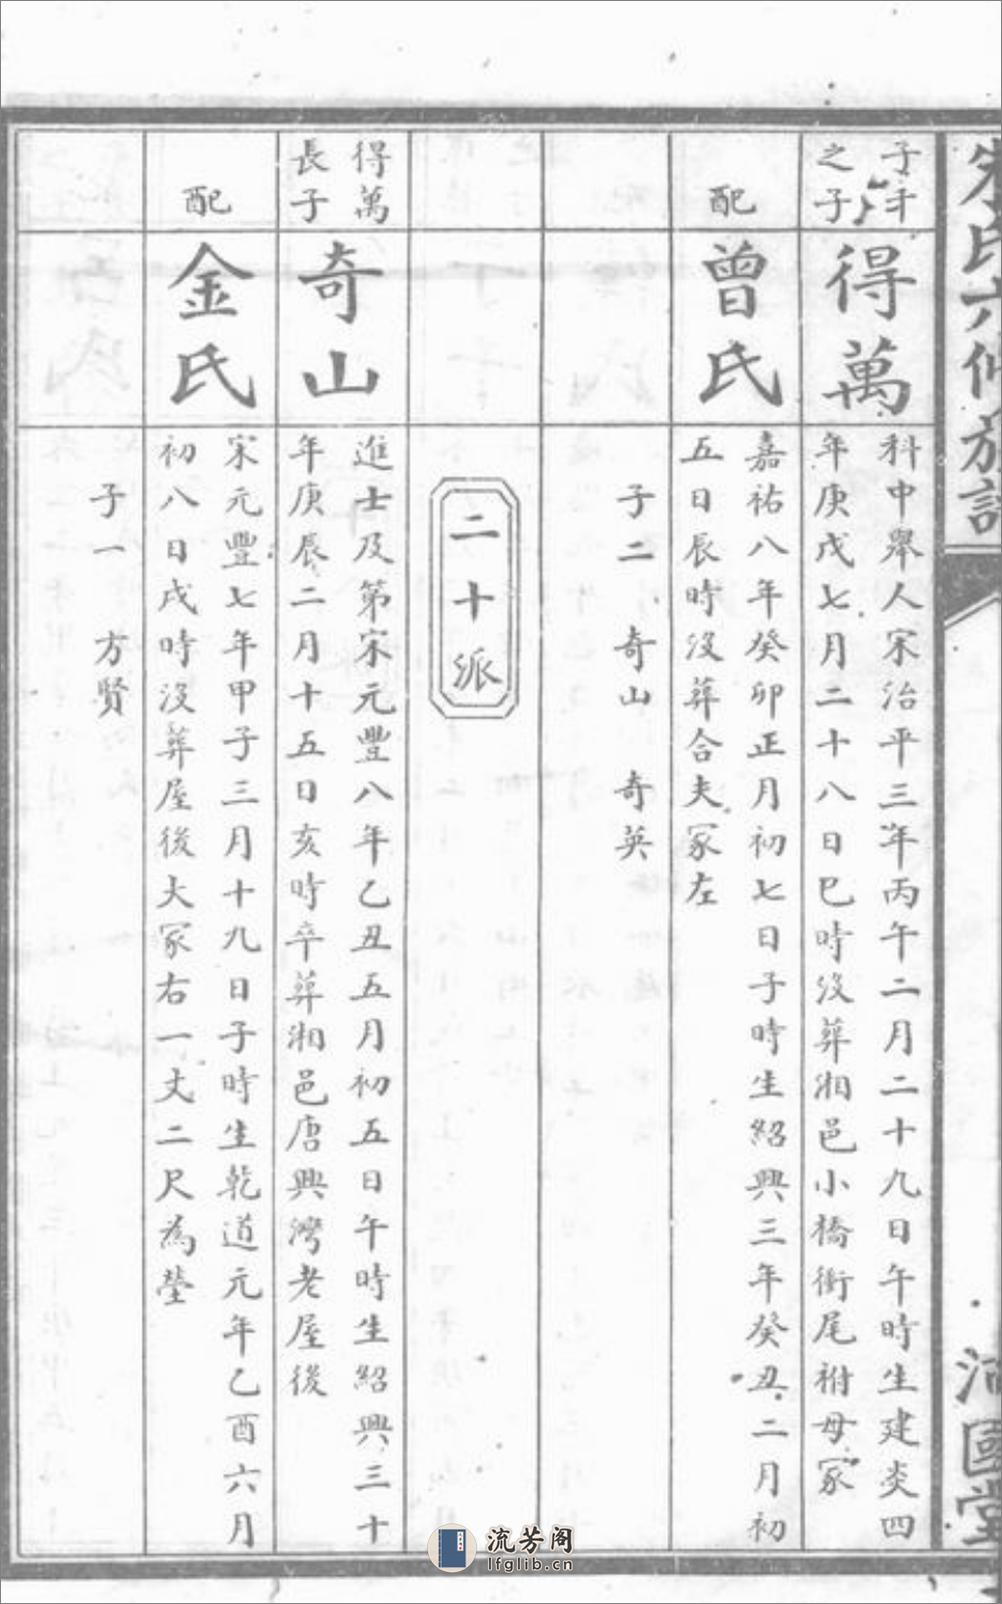 朱氏六修族譜
沛國堂
之子
得萬
科中舉人宋治平三年丙午二月二十九日午時生建炎四
年庚戌七月二十八日巳時沒葬湘邑小橋衝尾祔母冢
配
曾氏
嘉祐八年癸卯正月初七日子時生紹興三年癸丑二月初
五日辰時沒葬合夫冢左
子二 奇山 奇英
二十派
得萬
長子
奇山
進士及第宋元豐八年乙丑五月初五日午時生紹興三十
年庚辰二月十五日亥時卒葬湘邑唐興灣老屋後
配
金氏
宋元豐七年甲子三月十九日子時生乾道元年乙酉六月
初八日戌時沒葬屋後大冢右一丈二尺為塋
子一 方賢
流芳阁
lfglib.cn